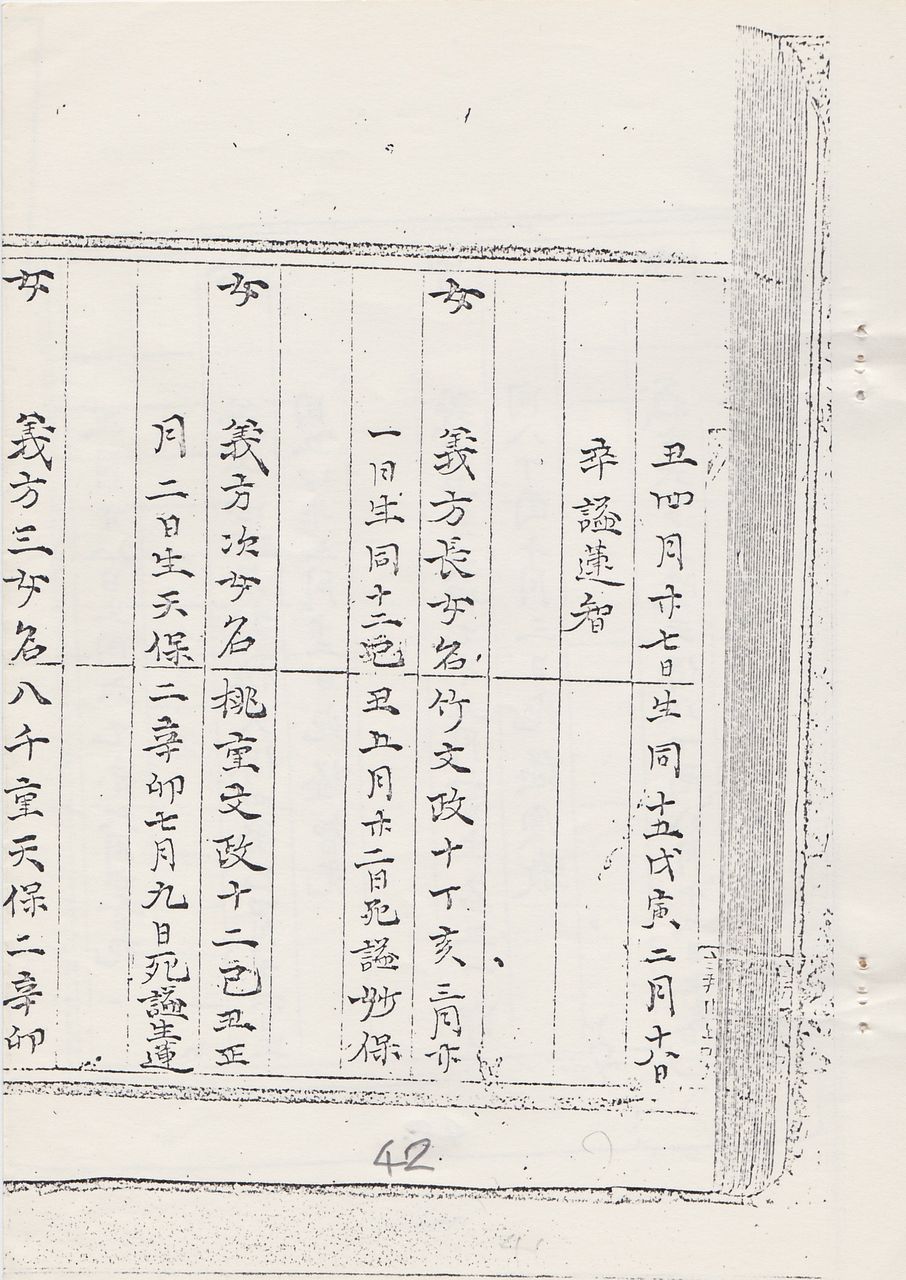 丑四月廿七日生同十五戊寅二月十六日
卒謚蓮智
女 義方長女名竹文政十丁亥三月廿
一日生同十二己丑五月廿二日死謚妙保
女 義方次女名桃童文政十二己丑正
月二日生天保二辛卯七月九日死謚生蓮
女 義方三女名八千童天保二辛卯
42